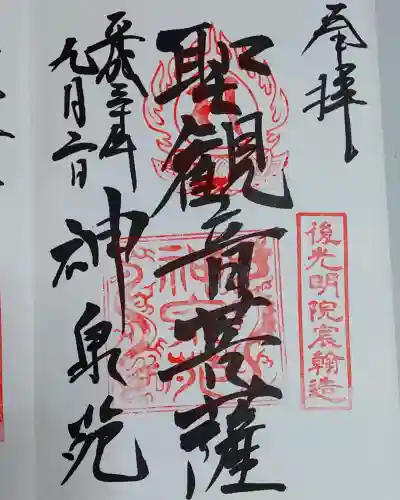 奉拝
後光明院宸翰造
聖観音菩薩
平成三十年
九月二日
神泉苑